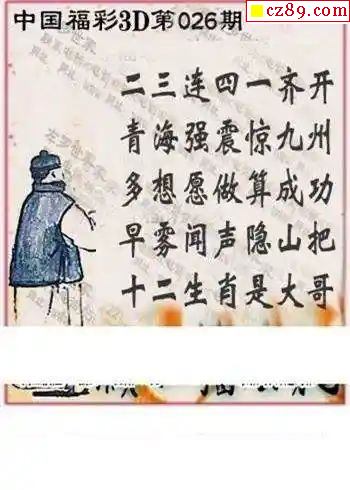 cz89.com
中国福彩3D第026期
二三连四一齐开
青海强震惊九州
多想愿做算成功
早雾闻声隐山把
十二生肖是大哥